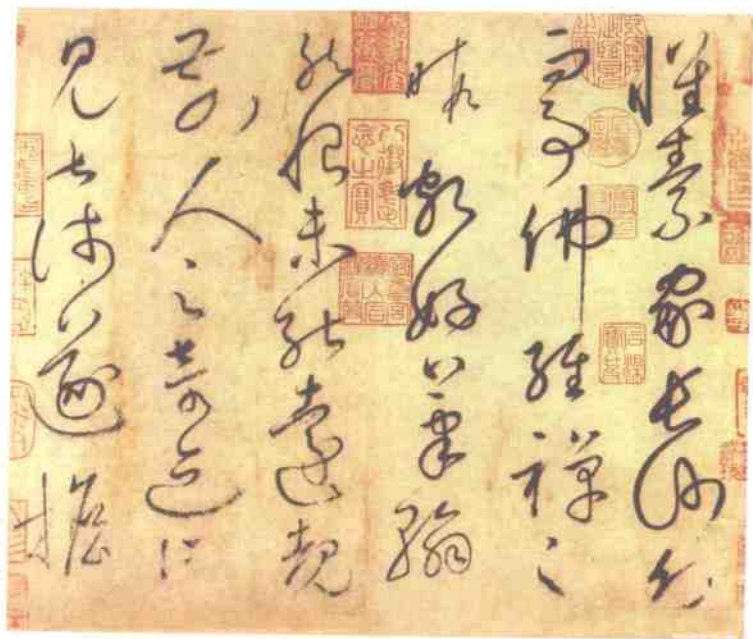 懷素家長沙幼
而事佛經禪之
暇頗好筆翰
然恨未能遠覩
前人之奇迹所
見甚淺遂擔
八徵耄念之寶